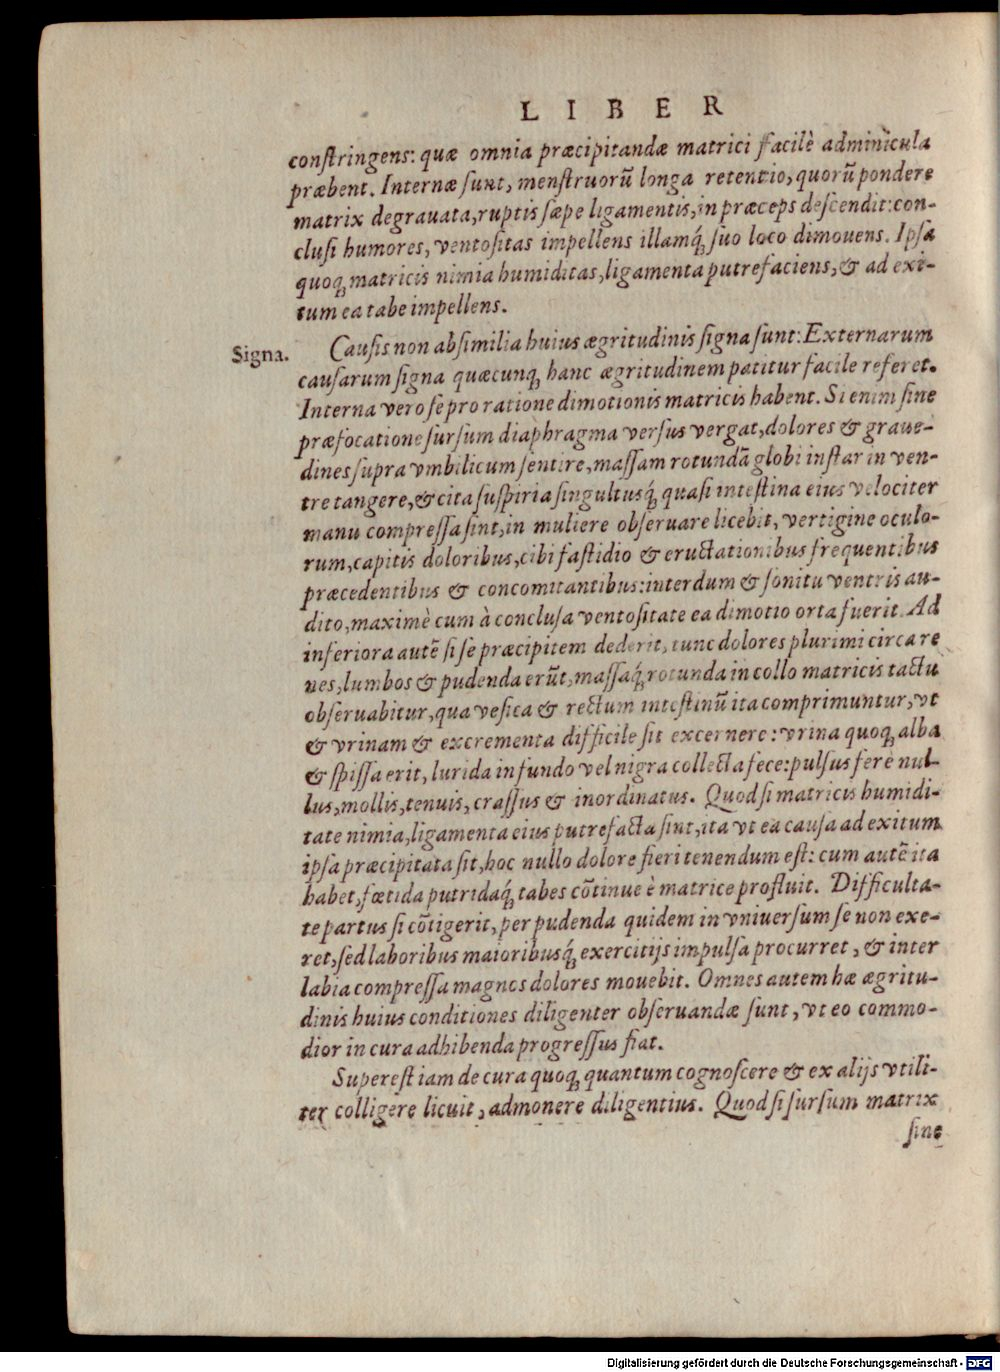 LIBER
constringens: quæ omnia præcipitandæ matrici facilè adminicula
præbent. Internæ sunt, menstruorũ longa retentio, quorũ pondere
matrix degrauata, ruptis sæpe ligamentis, in præceps descendit: con-
clusi humores, ventositas impellens illamq́; suo loco dimouens. Ipsa
quoq; matricis nimia humiditas, ligamenta putrefaciens, & ad exi-
tum ea tabe impellens.
Signa.
Causis non absimilia huius ægritudinis signa sunt: Externarum
causarum signa quæcunq; hanc ægritudinem patitur facile referet.
Interna vero se pro ratione dimotionis matricis habent. Si enim sine
præfocatione sursum diaphragma versus vergat, dolores & graue-
dines supra vmbilicum sentire, massam rotundã globi instar in ven-
tre tangere, & cita suspiria singultusq́; quasi intestina eius velociter
manu compressa sint, in muliere obseruare licebit, vertigine oculo-
rum, capitis doloribus, cibi fastidio & eructationibus frequentibus
præcedentibus & concomitantibus: interdum & sonitu ventris au-
dito, maximè cum à conclusa ventositate ea dimotio orta fuerit. Ad
inferiora autẽ si se præcipitem dederit, tunc dolores plurimi circa re
nes, lumbos & pudenda erũt, massaq́; rotunda in collo matricis tactu
obseruabitur, qua vesica & rectum intestinũ ita comprimuntur, vt
& vrinam & excrementa difficile sit excernere: vrina quoq; alba
& spissa erit, lurida in fundo vel nigra collecta fece: pulsus ferè nul-
lus, mollis, tenuis, crassus & inordinatus. Quod si matricis humidi-
tate nimia, ligamenta eius putrefacta sint, ita vt ea causa ad exitum
ipsa præcipitata sit, hoc nullo dolore fieri tenendum est: cum autẽ ita
habet, fœtida putridaq́; tabes cõtinue è matrice profluit. Difficulta-
te partus si cõtigerit, per pudenda quidem in vniuersum se non exe-
ret, sed laboribus maioribusq́; exercitijs impulsa procurret, & inter
labia compressa magnos dolores mouebit. Omnes autem hæ ægritu-
dinis huius conditiones diligenter obseruandæ sunt, vt eo commo-
dior in cura adhibenda progressus fiat.
Superest iam de cura quoq; quantum cognoscere & ex alijs vtili-
ter colligere licuit, admonere diligentius. Quod si sursum matrix
sine
Digitalisierung gefördert durch die Deutsche Forschungsgemeinschaft - DFG